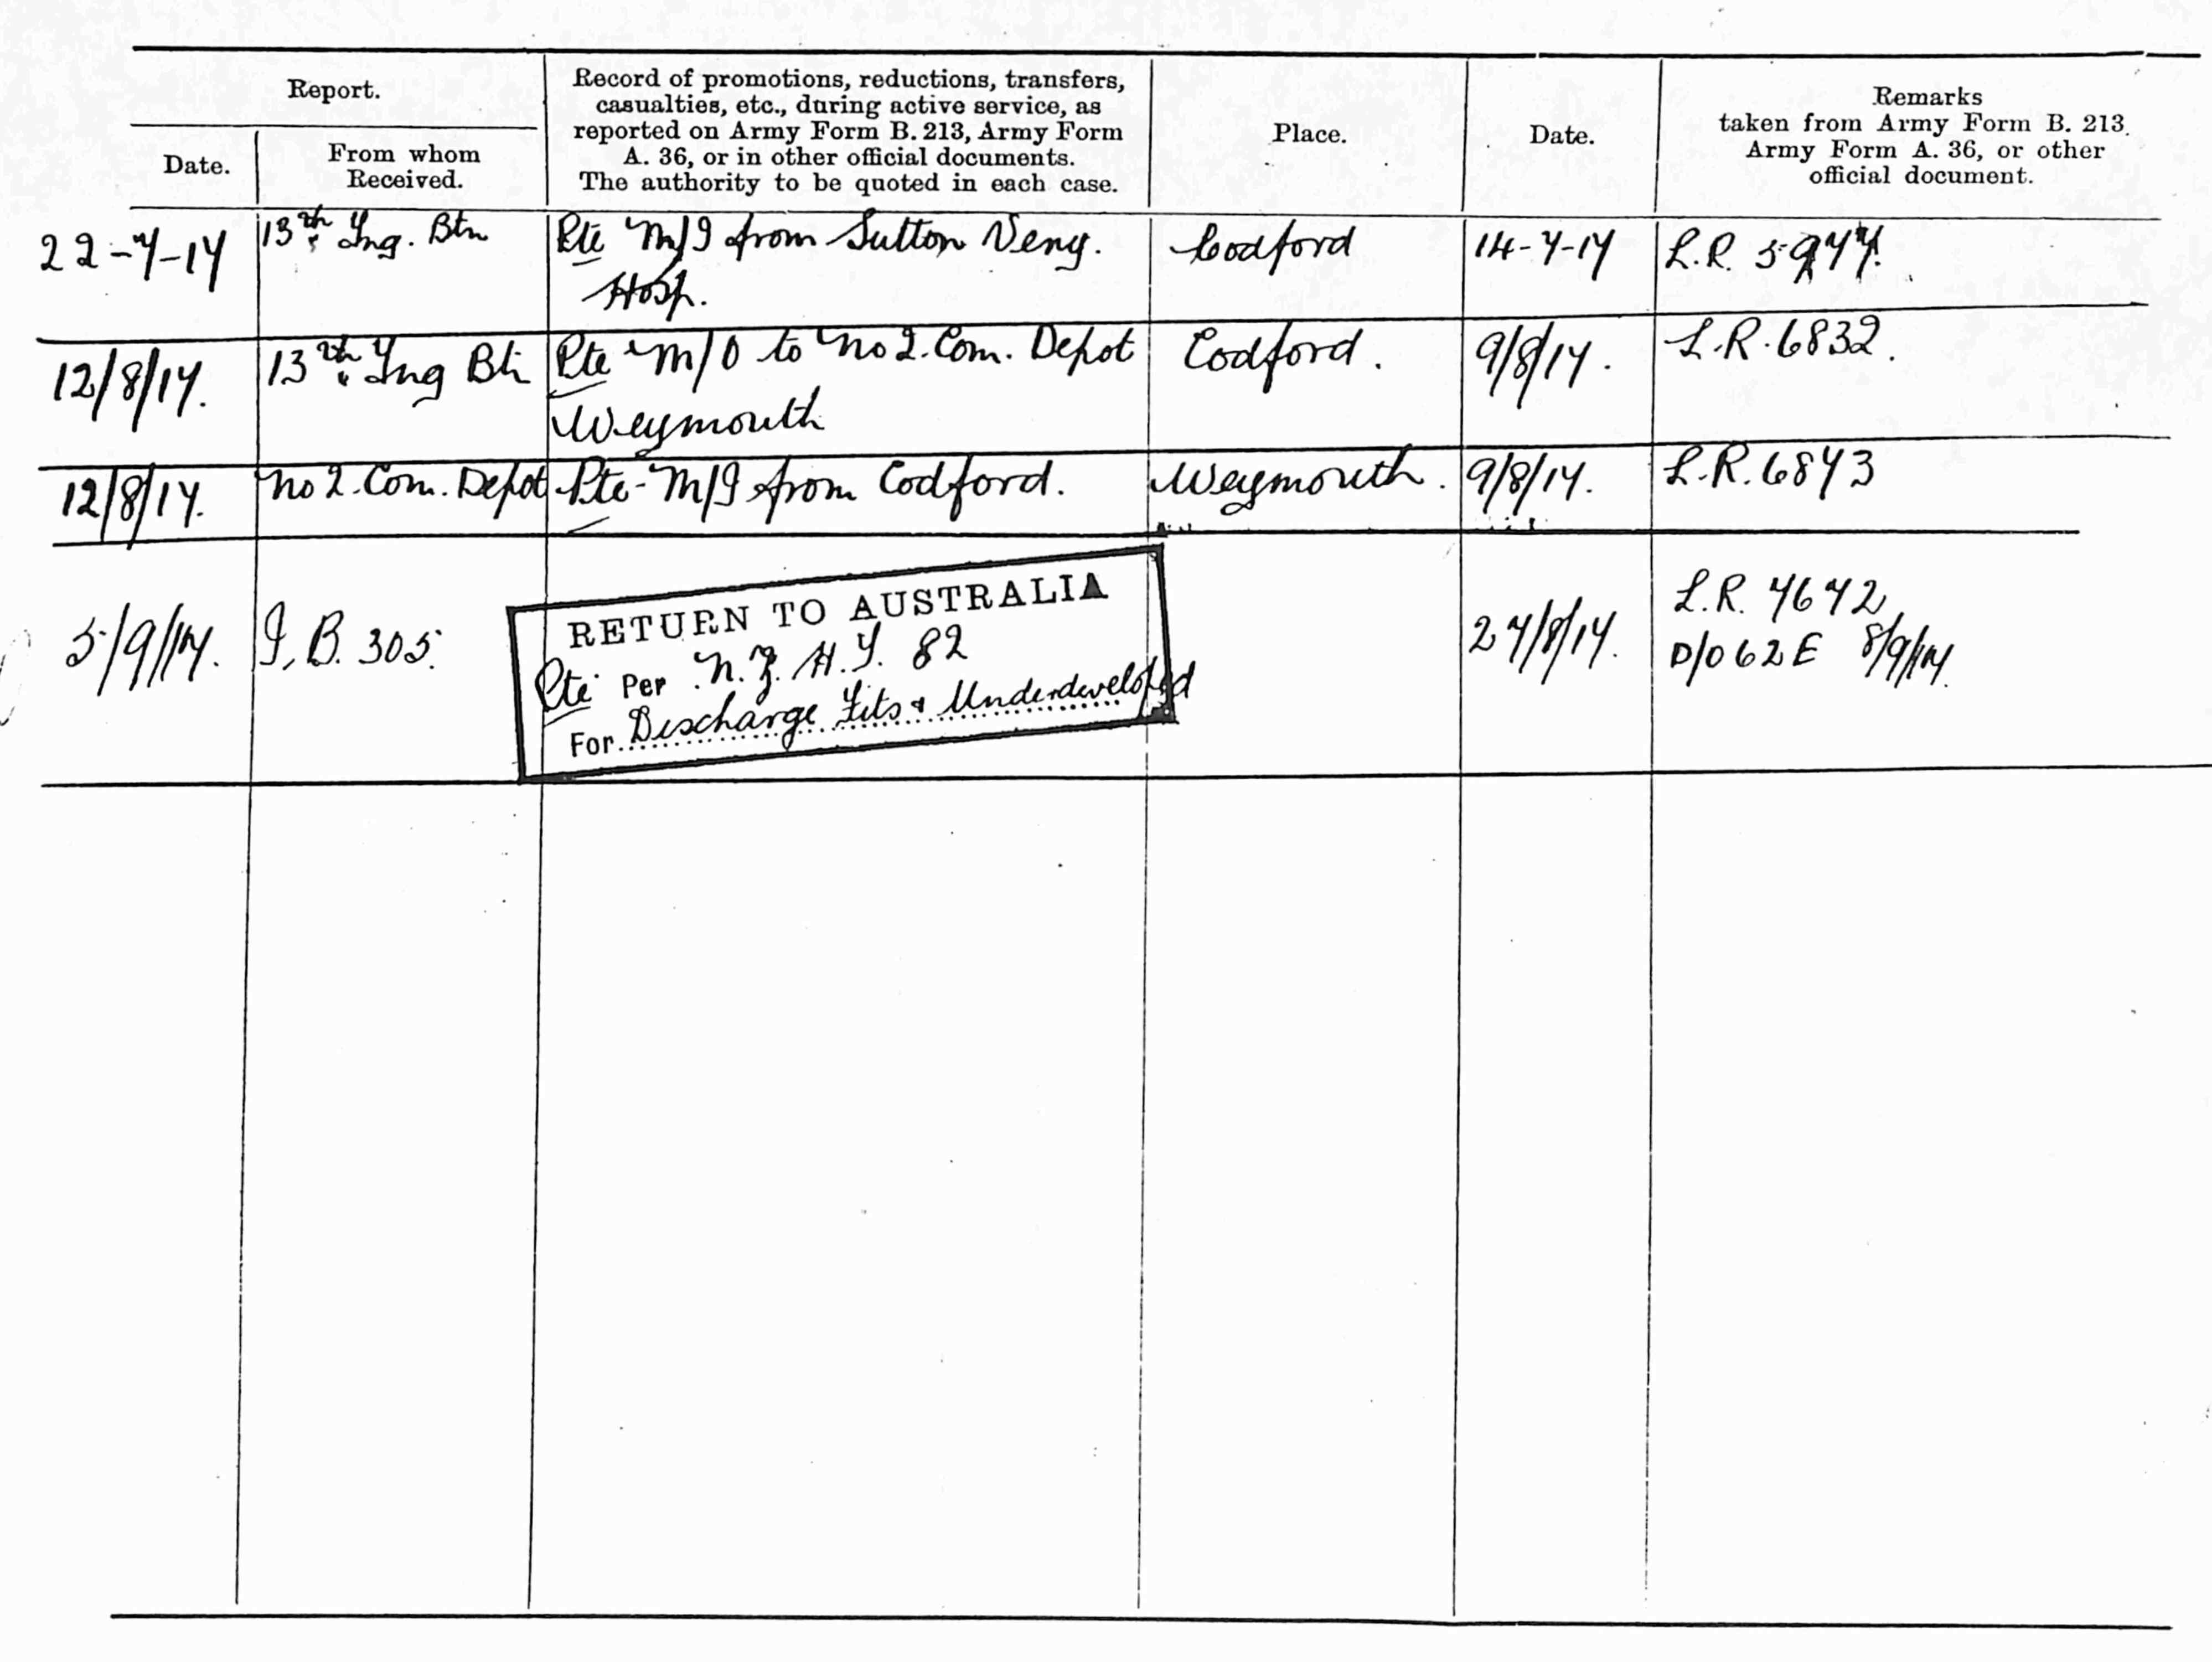 Report.
Date.
From whom
Received.
Record of promotions, reductions, transfers,
casualties, etc., during active service, as
reported on Army Form B. 213, Army Form
A. 36, or in other official documents.
The authority to be quoted in each case.
Place.
Date.
Remarks
taken from Army Form B. 213.
Army Form A. 36, or other
official document.
22-7-17 13th Tng. Btn Pte M/I from Sutton Veny. Codford 14-7-17 L.R. 5977.
Hosp.
12/8/17. 13th Tng Btn Pte M/O to No 2. Com. Depot Codford. 9/8/17. L.R. 6832.
Weymouth
12/8/17. No 2. Com. Depot Pte M/I from Codford. Weymouth. 9/8/17. L.R. 6873
5/9/17. I.B. 305. 27/8/17. L.R. 7672
D/062E 8/9/17.
RETURN TO AUSTRALIA
Pte Per N.Z. H.T. 82
For Discharge Fits & Underdeveloped